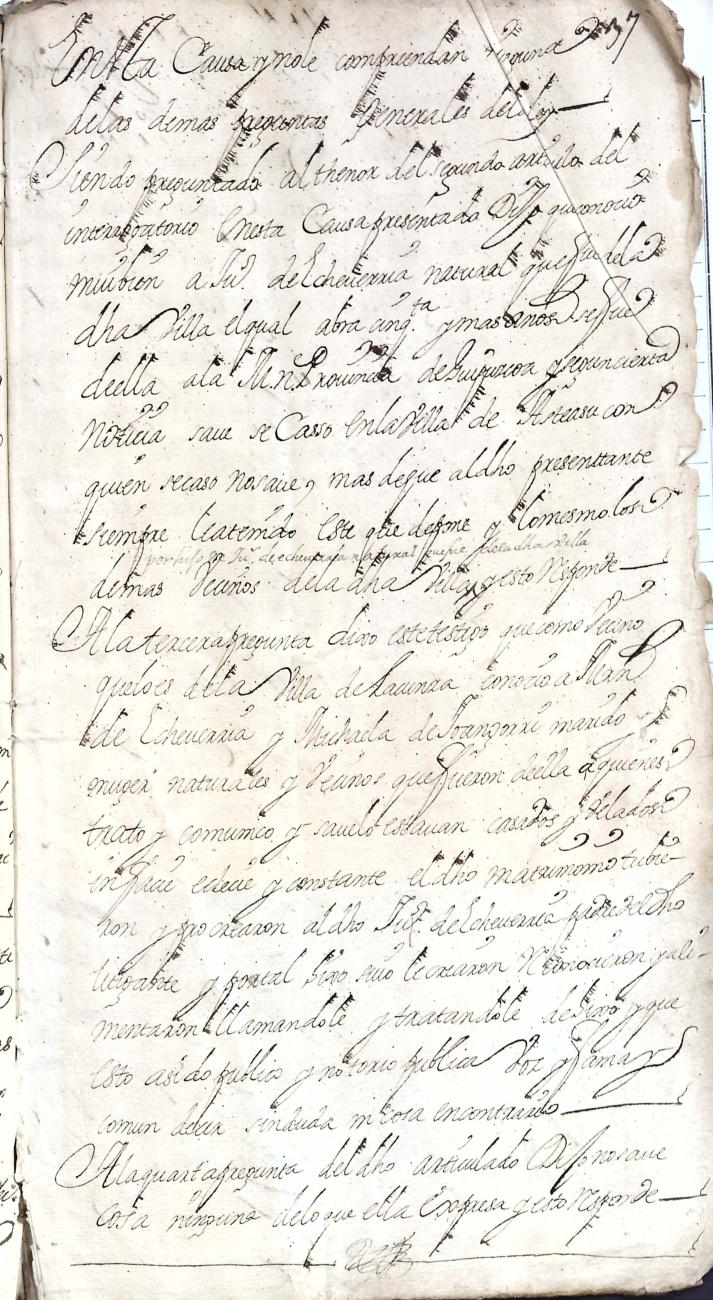 37
En esta Causa y no le comprendan ninguna
de las demas preguntas Generales dela ley
Siendo preguntado al thenor del segundo articulo del
interrogatorio en esta Causa presentado Dijo que conocio
mui bien a Ju.º de Echeverria natural que fue de la
dha Villa el qual abra cinq.ta y mas años se fue
de ella ala M. N. Provincia de Guipuzcoa y segun cierta
noticia save se Casso en la Villa de Asteasu con
quien se caso no save, mas de que al dho presenttante
siempre le a tenido este que depone y lo mesmo los
por hijo de Ju.º de echeverria natural que fue de la dha villa
demas Vecinos de la dha Villa y esto responde
A la tercera pregunta dixo este testigo que como Vecino
que lo es de la Villa de Lacunza conocio a Mrn
de Echeverria y Michaela de marido y
muger naturales y Vecinos que fueron de ella a quienes
trato y comunico y save lo estavan casados y velados
in facie eclecie y constante el dho matrimonio tubie-
ron y procrearon al dho Ju.º de Echeverria padre del dho
litigante y por tal hixo suio le criaron Reconocieron y ali-
mentaron llamandole y tratandole de hixo y que
esto a sido publico y notorio publica Voz y fama y
comun decir sin duda ni cosa en contrario
A la quarta pregunta del dho articulado Dijo no save
cosa ninguna de lo que ella Expresa y esto responde